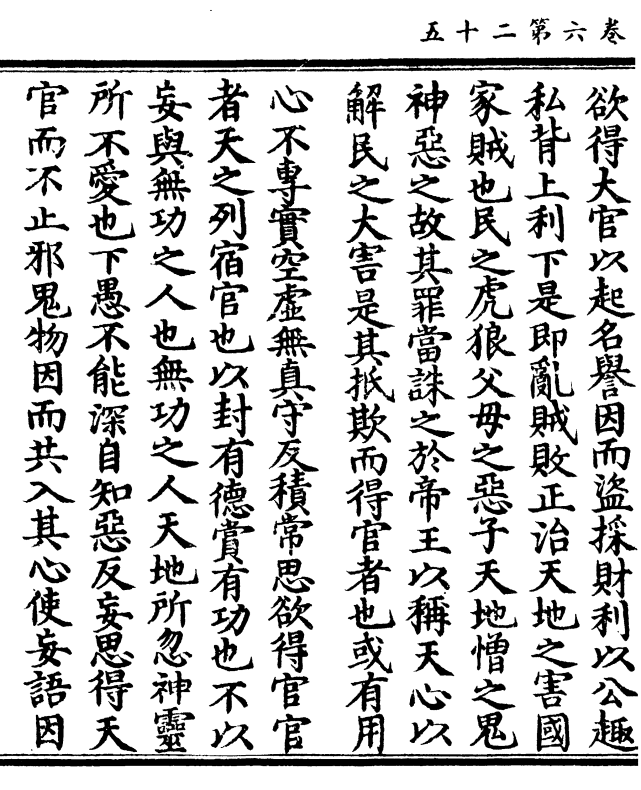 五十二第六卷
欲得大官以起名譽因而盜採財利以公趣
私背上利下是即亂賊敗正治天地之害國
家賊也民之虎狼父母之惡子天地憎之鬼
神惡之故其罪當誅之於帝王以稱天心以
解民之大害是其抵欺而得官者也或有用
心不專實空虛無真守反積常思欲得官官
者天之列宿官也以封有德賞有功也不以
妄與無功之人也無功之人天地所忽神靈
所不愛也下愚不能深自知惡反妄思得天
官而不止邪鬼物因而共入其心使妄語因